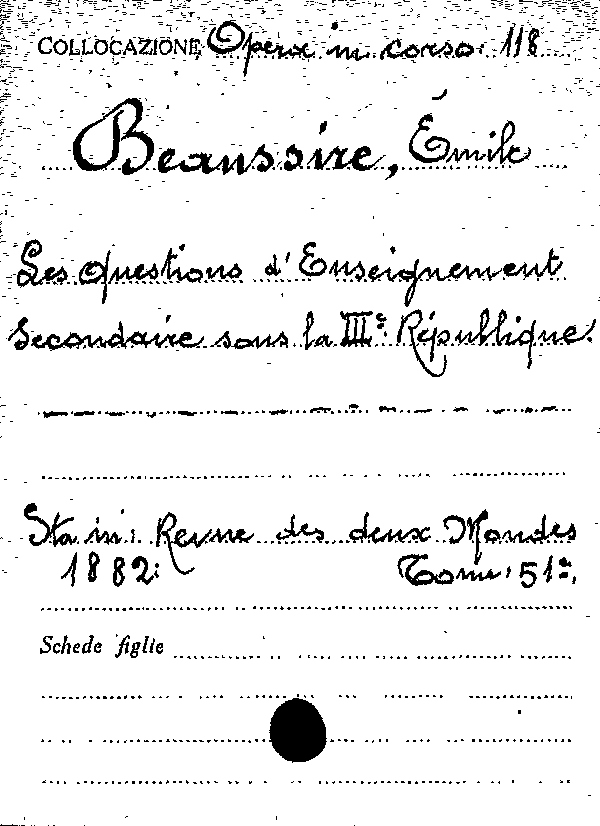 COLLOCAZIONE Opera in corso: 118
Beaussire, Émile
Les Questions d'Enseignement
Secondaire sous la IIIe République.
Sta in: Revue des deux Mondes
1882: Tome: 51º.
Schede figlie